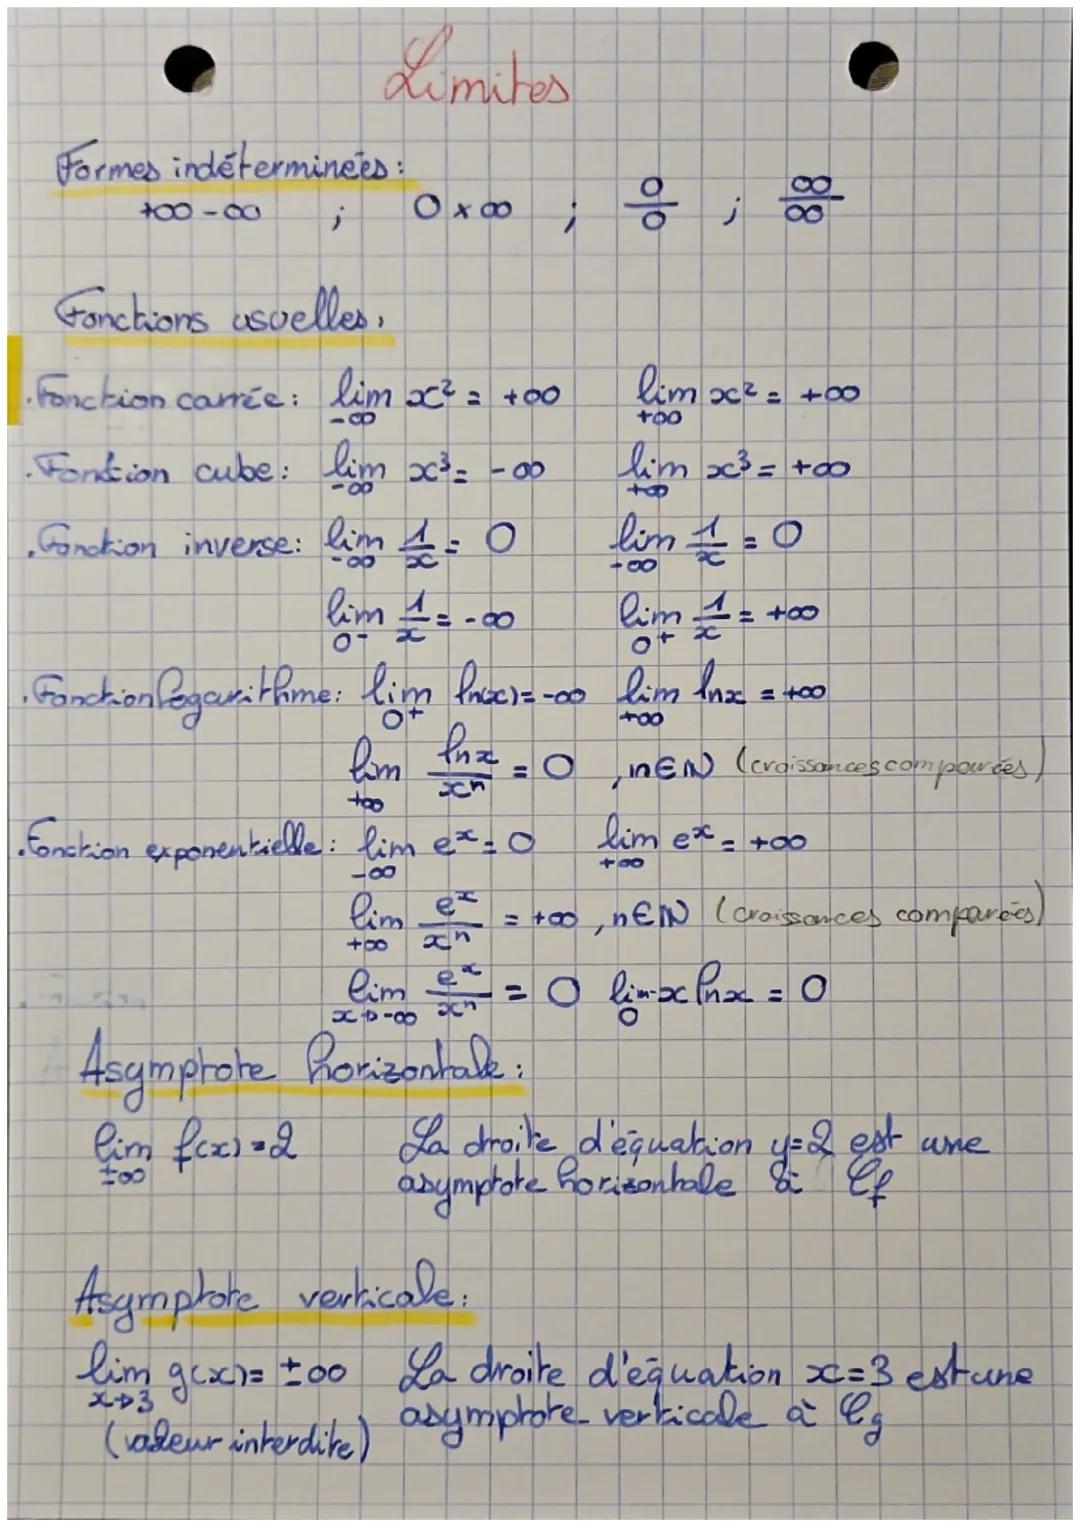 Limites
Formes indéterminées :
+∞ - ∞ ; 0 × ∞ ; 0/0 ; ∞/∞
Fonctions usuelles,
. Fonction carrée : lim x² = +∞ lim x² = +∞
-∞ +∞
. Fonction cube : lim x³ = -∞ lim x³ = +∞
-∞ +∞
. Fonction inverse : lim 1/x = 0 lim 1/x = 0
-∞ -∞
lim 1/x = -∞ lim 1/x = +∞
0- 0+
. Fonction logarithme : lim ln(x) = -∞ lim lnx = +∞
0+ +∞
lim lnx/xⁿ = 0 , n∈ℕ (croissances comparées)
+∞
. Fonction exponentielle : lim eˣ = 0 lim eˣ = +∞
-∞ +∞
lim eˣ/xⁿ = +∞ , n∈ℕ (croissances comparées)
+∞
lim eˣ/xⁿ = 0 lim x lnx = 0
x→-∞ 0
Asymptote horizontale :
lim f(x) = 2 La droite d'équation y=2 est une
±∞ asymptote horizontale à Cf
Asymptote verticale :
lim g(x) = ±∞ La droite d'équation x=3 est une
x→3 asymptote verticale à Cg
(valeur interdite)